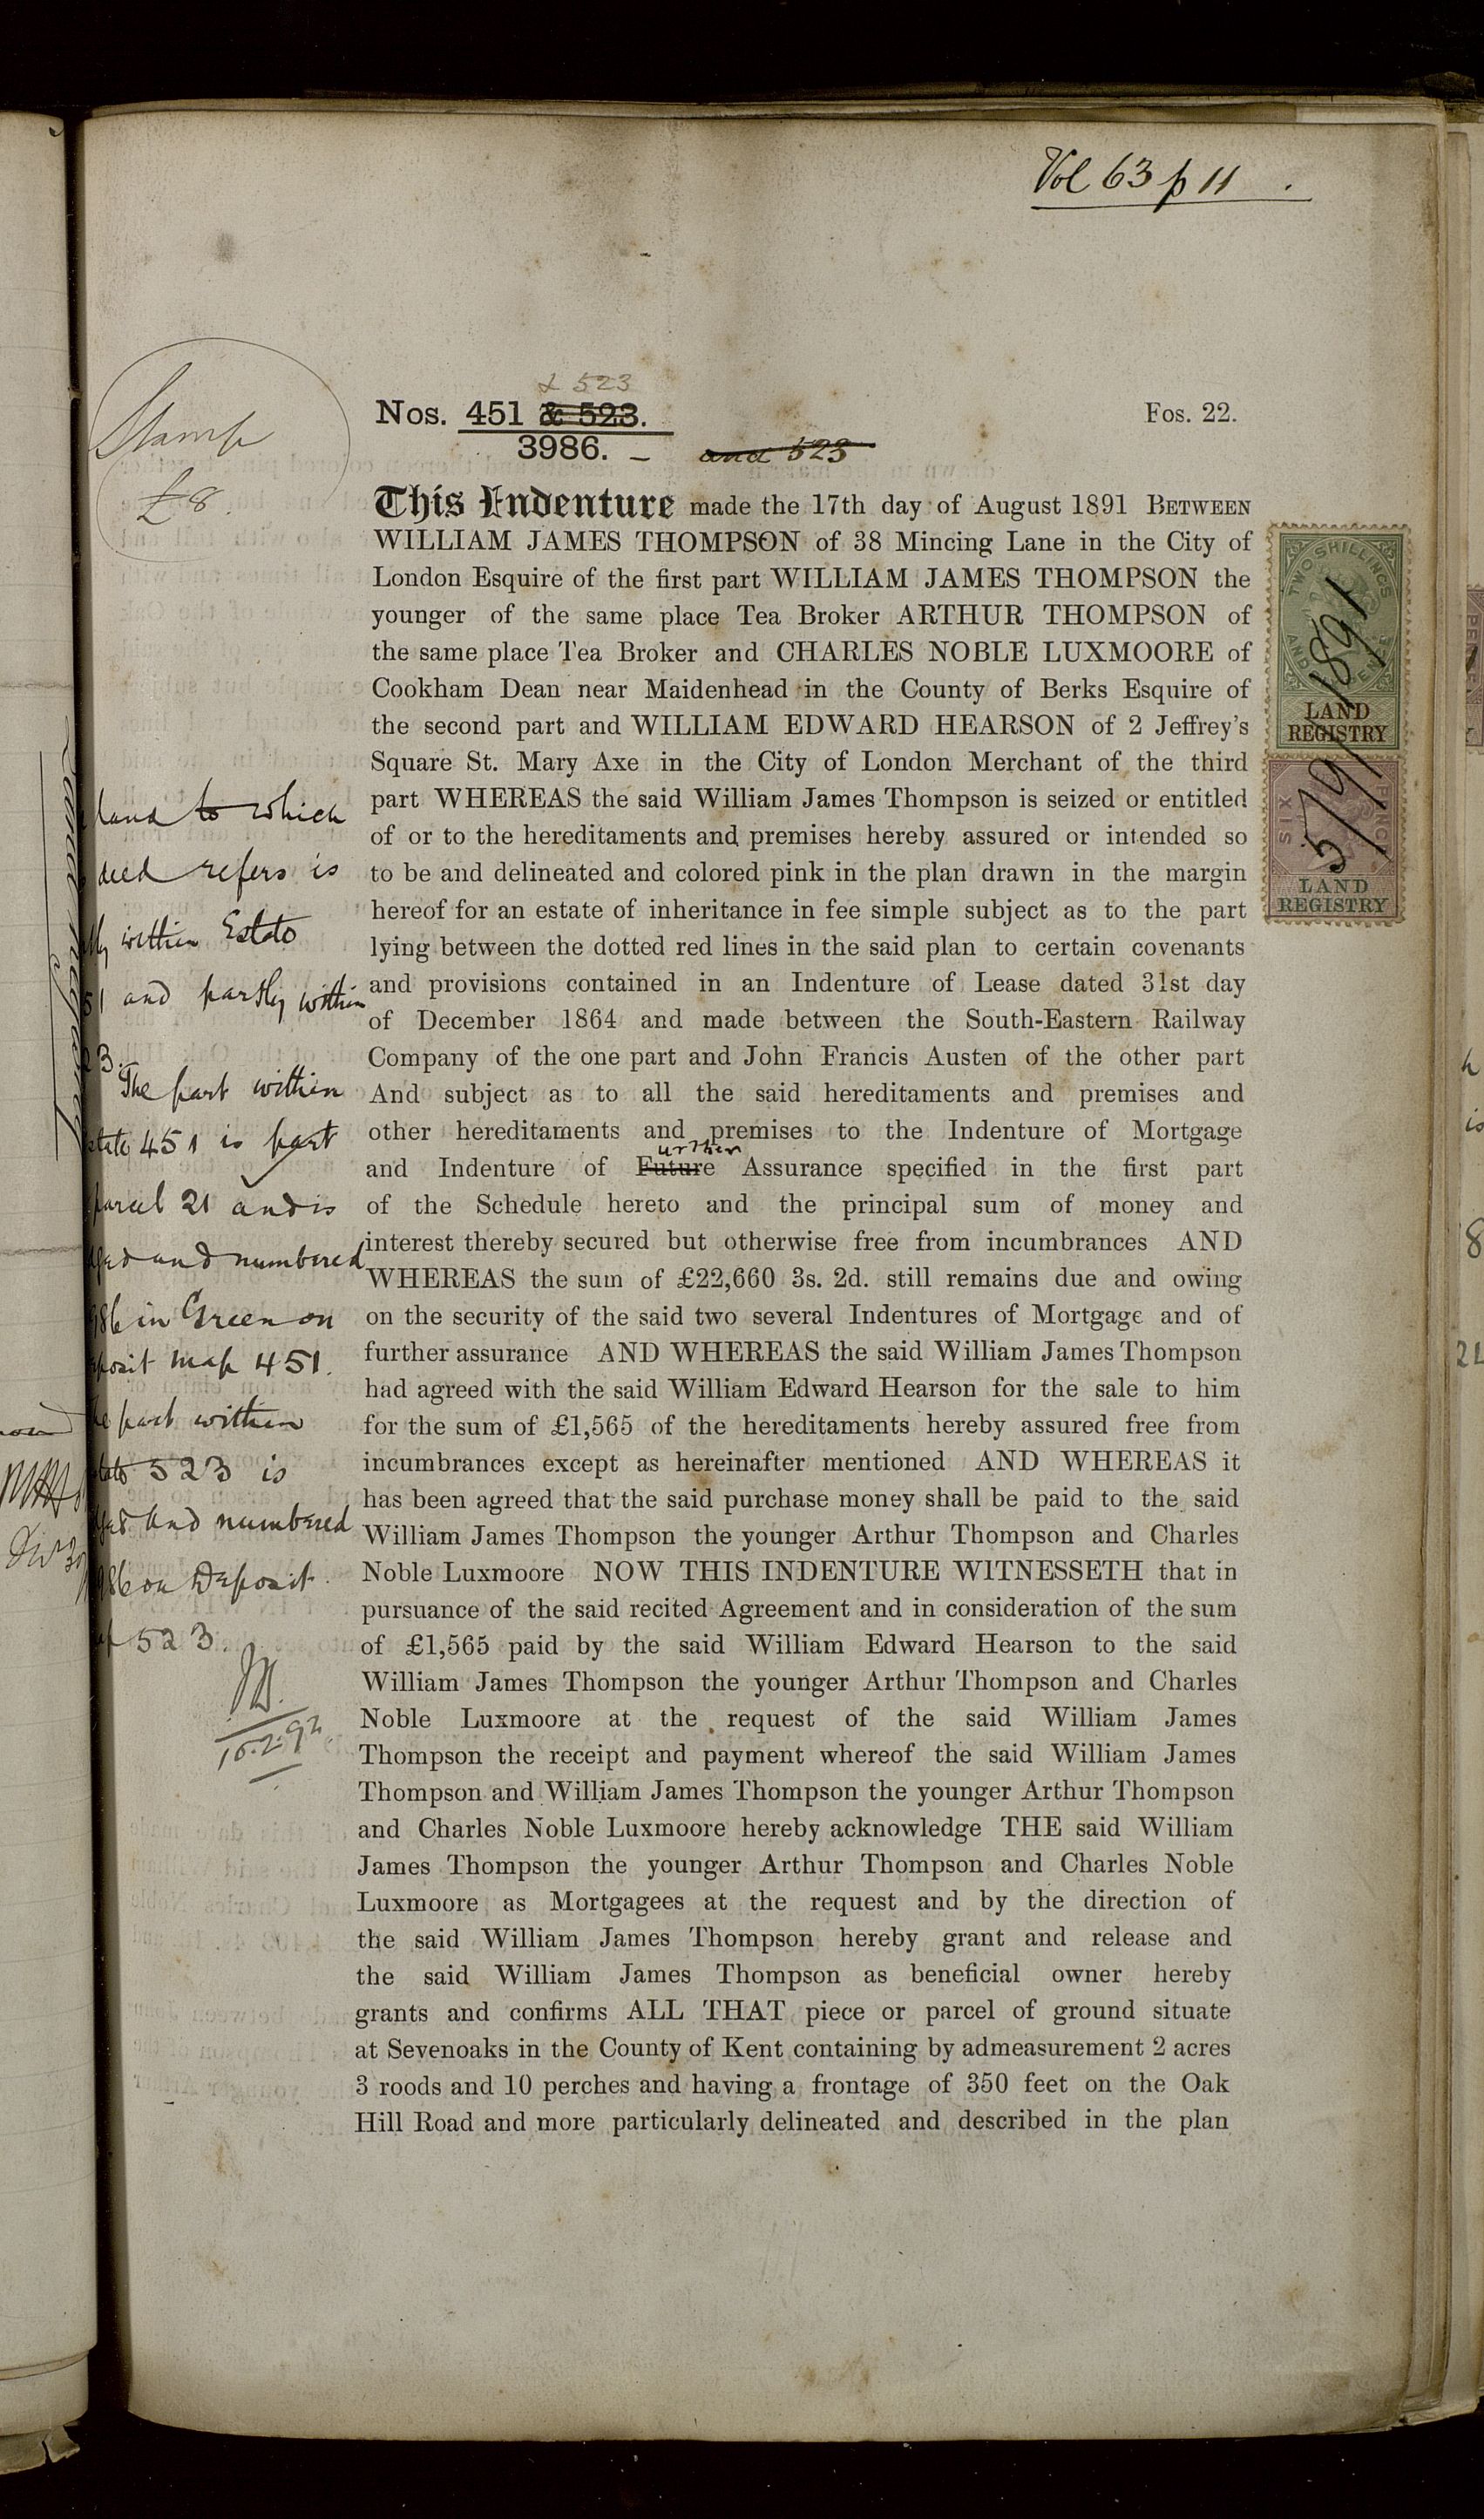 Vol 63 p 11
Stamp
£8.
& 523
Nos. 451 & 523.
Fos. 22.
3986. – and 523
This Indenture made the 17th day of August 1891 BETWEEN
WILLIAM JAMES THOMPSON of 38 Mincing Lane in the City of
London Esquire of the first part WILLIAM JAMES THOMPSON the
younger of the same place Tea Broker ARTHUR THOMPSON of
the same place Tea Broker and CHARLES NOBLE LUXMOORE of
Cookham Dean near Maidenhead in the County of Berks Esquire of
the second part and WILLIAM EDWARD HEARSON of 2 Jeffrey's
Square St. Mary Axe in the City of London Merchant of the third
part WHEREAS the said William James Thompson is seized or entitled
of or to the hereditaments and premises hereby assured or intended so
to be and delineated and colored pink in the plan drawn in the margin
hereof for an estate of inheritance in fee simple subject as to the part
lying between the dotted red lines in the said plan to certain covenants
and provisions contained in an Indenture of Lease dated 31st day
of December 1864 and made between the South-Eastern Railway
Company of the one part and John Francis Austen of the other part
And subject as to all the said hereditaments and premises and
other hereditaments and premises to the Indenture of Mortgage
urther
and Indenture of Future Assurance specified in the first part
of the Schedule hereto and the principal sum of money and
interest thereby secured but otherwise free from incumbrances AND
WHEREAS the sum of £22,660 3s. 2d. still remains due and owing
on the security of the said two several Indentures of Mortgage and of
further assurance AND WHEREAS the said William James Thompson
had agreed with the said William Edward Hearson for the sale to him
for the sum of £1,565 of the hereditaments hereby assured free from
incumbrances except as hereinafter mentioned AND WHEREAS it
has been agreed that the said purchase money shall be paid to the said
William James Thompson the younger Arthur Thompson and Charles
Noble Luxmoore NOW THIS INDENTURE WITNESSETH that in
pursuance of the said recited Agreement and in consideration of the sum
of £1,565 paid by the said William Edward Hearson to the said
William James Thompson the younger Arthur Thompson and Charles
Noble Luxmoore at the request of the said William James
Thompson the receipt and payment whereof the said William James
Thompson and William James Thompson the younger Arthur Thompson
and Charles Noble Luxmoore hereby acknowledge THE said William
James Thompson the younger Arthur Thompson and Charles Noble
Luxmoore as Mortgagees at the request and by the direction of
the said William James Thompson hereby grant and release and
the said William James Thompson as beneficial owner hereby
grants and confirms ALL THAT piece or parcel of ground situate
at Sevenoaks in the County of Kent containing by admeasurement 2 acres
3 roods and 10 perches and having a frontage of 350 feet on the Oak
Hill Road and more particularly delineated and described in the plan
land to which
deed refers is
within Estate
and partly within
The part within
451 is part
parcel 21 and is
and numbered
in Green on
map 451.
part within
523 is
and numbered
on Deposit
523.
16.2.92
TWO SHILLINGS
AND
LAND
REGISTRY
SIX
PENCE
LAND
REGISTRY
5/9/1891